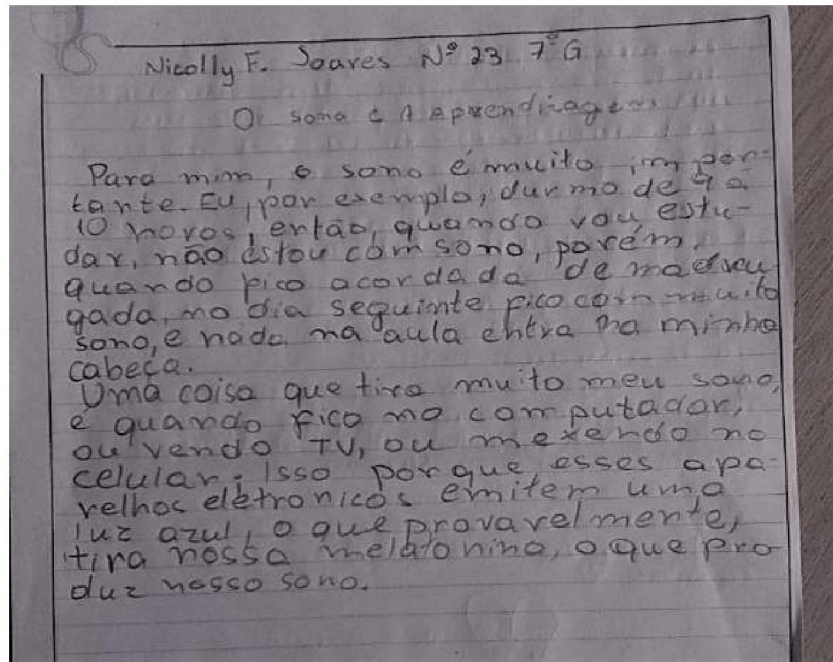 Nicolly F. Soares Nº 23 7º G
O sono e A Aprendizagem
Para mim, o sono é muito impor-
tante. Eu, por exemplo, durmo de 9 a
10 horas, então, quando vou estu-
dar, não estou com sono, porém,
quando fico acordada de madru
gada, no dia seguinte fico com muito
sono, e nada na aula entra na minha
cabeça.
Uma coisa que tira muito meu sono,
e quando fico no computador,
ou vendo TV, ou mexendo no
celular. Isso porque esses apa-
relhos eletronicos emitem uma
luz azul, o que provavelmente,
tira nossa melatonina, o que pro
duz nosso sono.